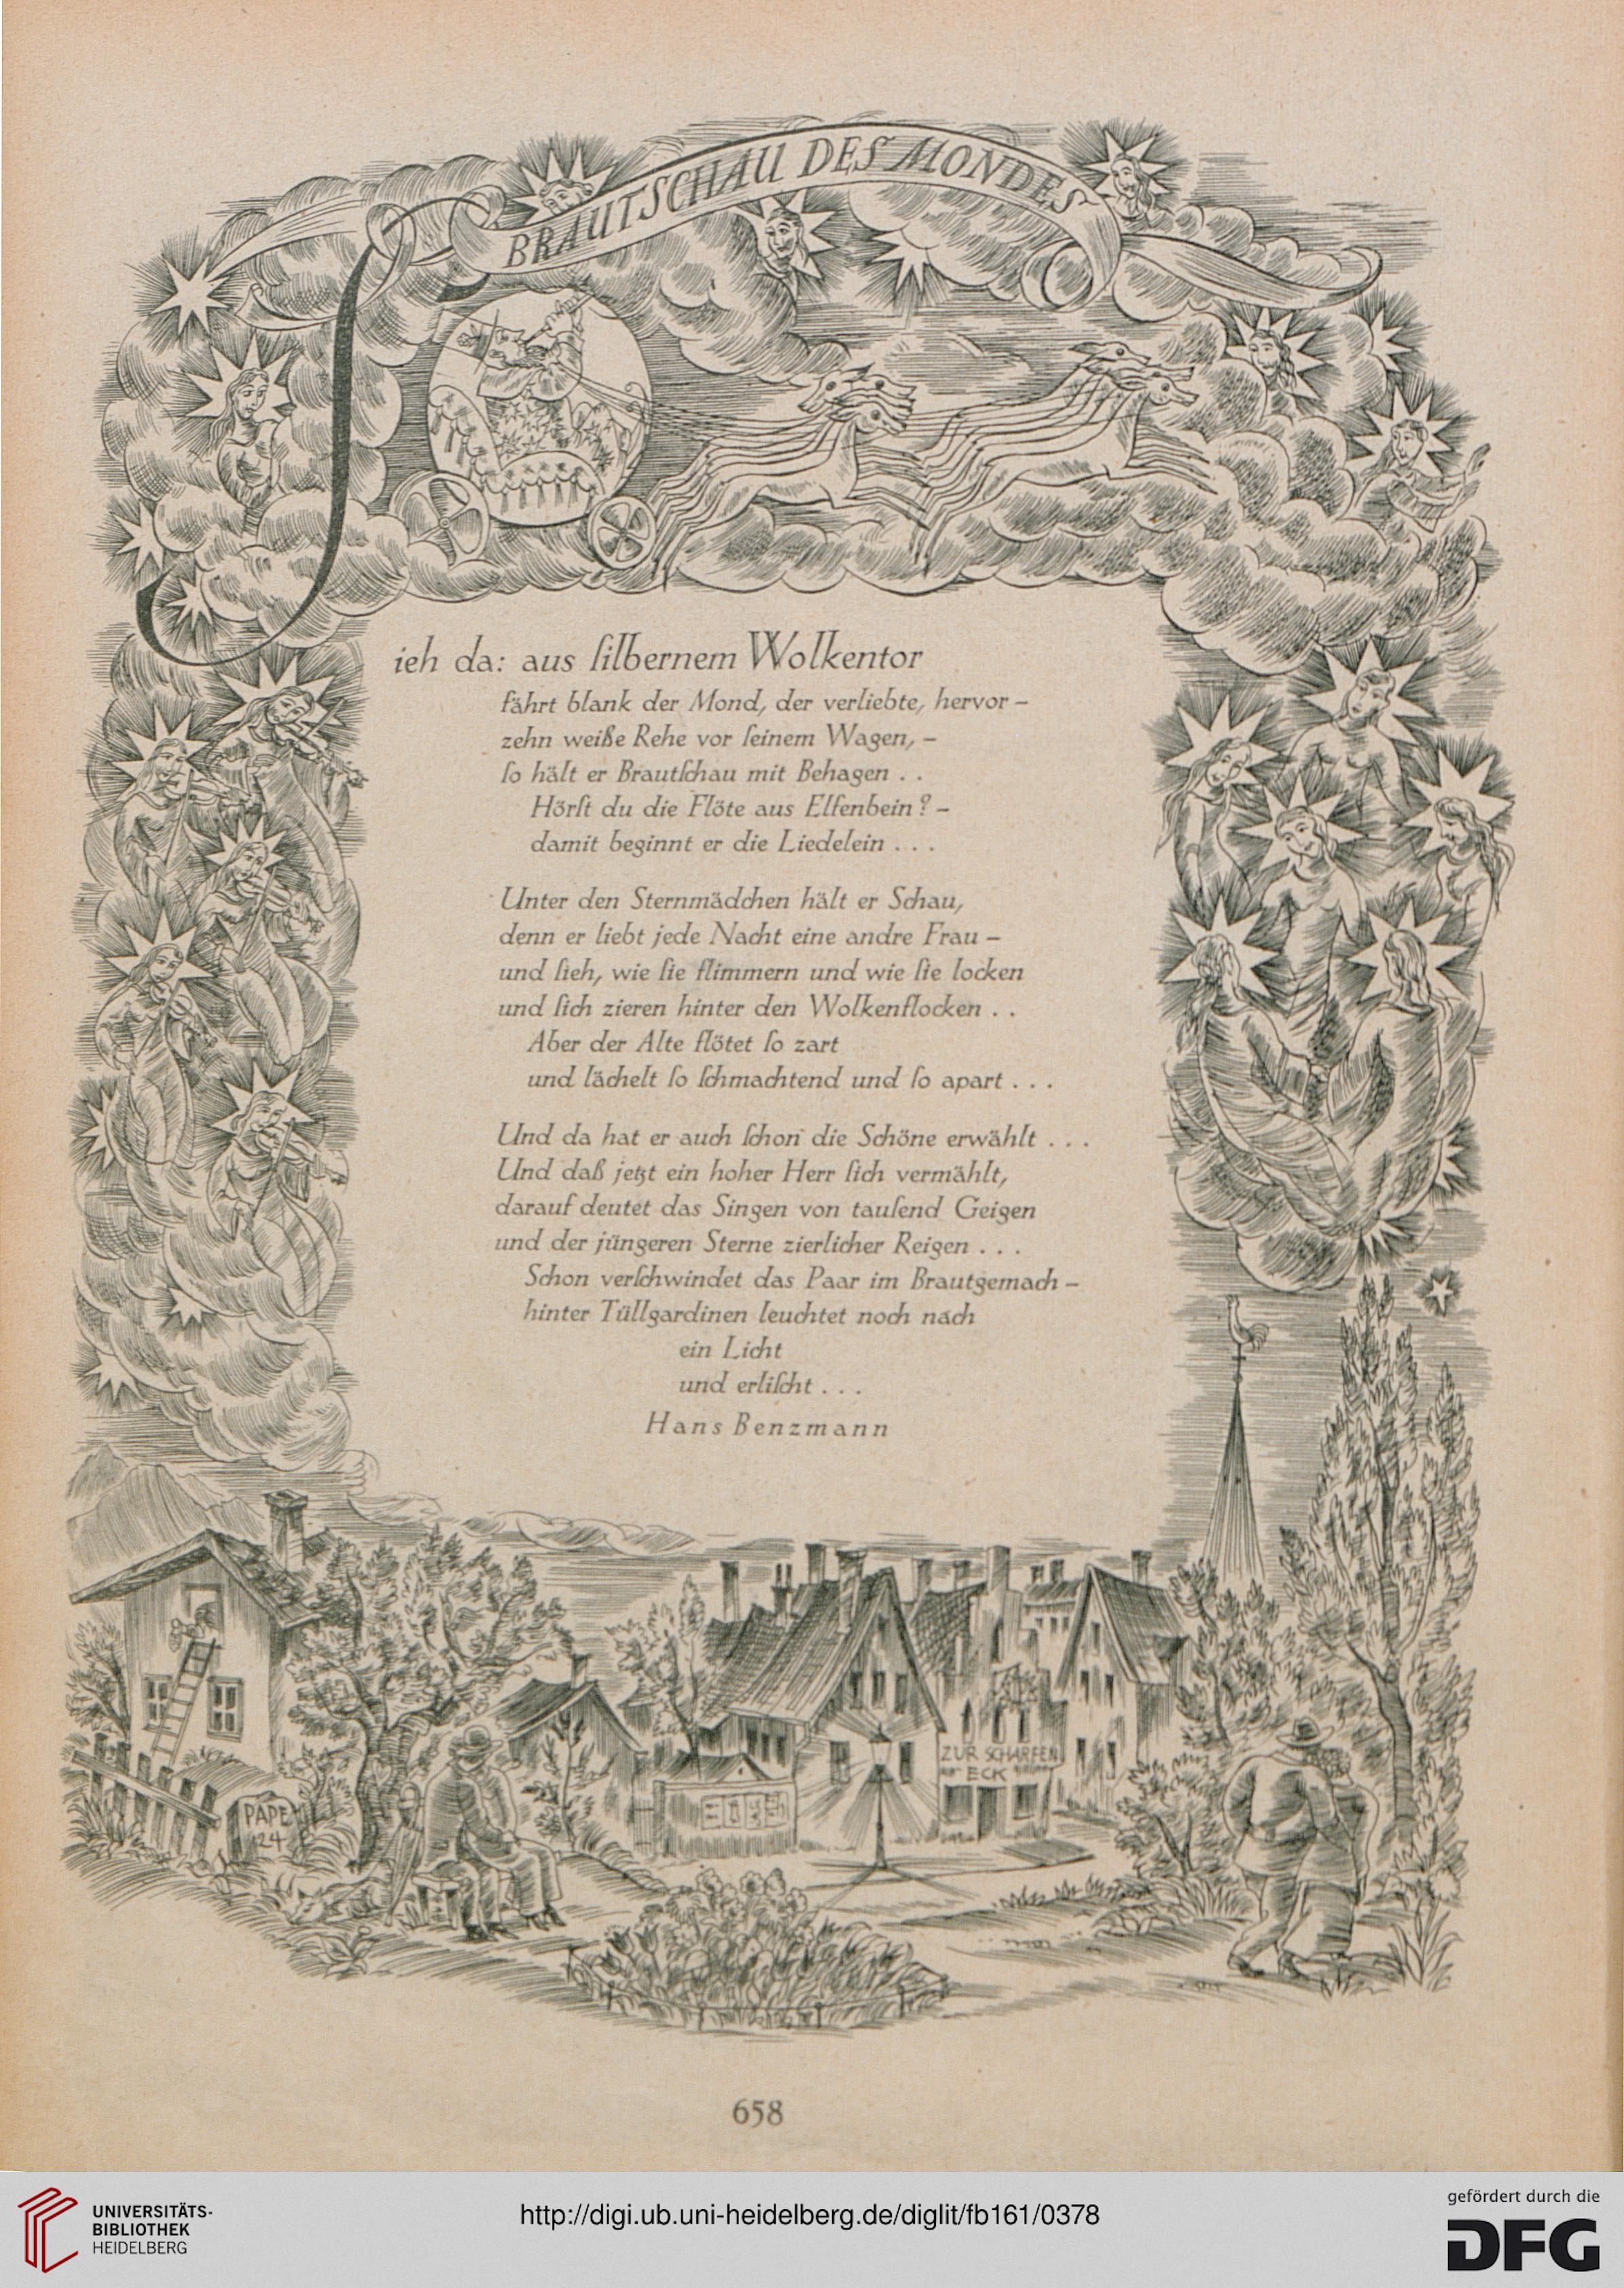 BRAUTSCHAU DES MONDES
Sieh da: aus ſilbernem Wolkentor
fährt blank der Mond, der verliebte, hervor –
zehn weiße Rehe vor ſeinem Wagen, –
ſo hält er Brautſchau mit Behagen . .
Hörſt du die Flöte aus Elfenbein? –
damit beginnt er die Liedelein . . .
Unter den Sternmädchen hält er Schau,
denn er liebt jede Nacht eine andre Frau –
und ſieh, wie ſie flimmern und wie ſie locken
und ſich zieren hinter den Wolkenflocken . .
Aber der Alte flötet ſo zart
und lächelt ſo ſchmachtend und ſo apart . . .
Und da hat er auch ſchon die Schöne erwählt . . .
Und daß jetzt ein hoher Herr ſich vermählt,
darauf deutet das Singen von tauſend Geigen
und der jüngeren Sterne zierlicher Reigen . . .
Schon verſchwindet das Paar im Brautgemach –
hinter Tüllgardinen leuchtet noch nach
ein Licht
und erliſcht . . .
Hans Benzmann
ZUR SCHARFEN
ECK
PAPE
24
658
UNIVERSITÄTS-
BIBLIOTHEK
HEIDELBERG
http://digi.ub.uni-heidelberg.de/diglit/fb161/0378
gefördert durch die
DFG